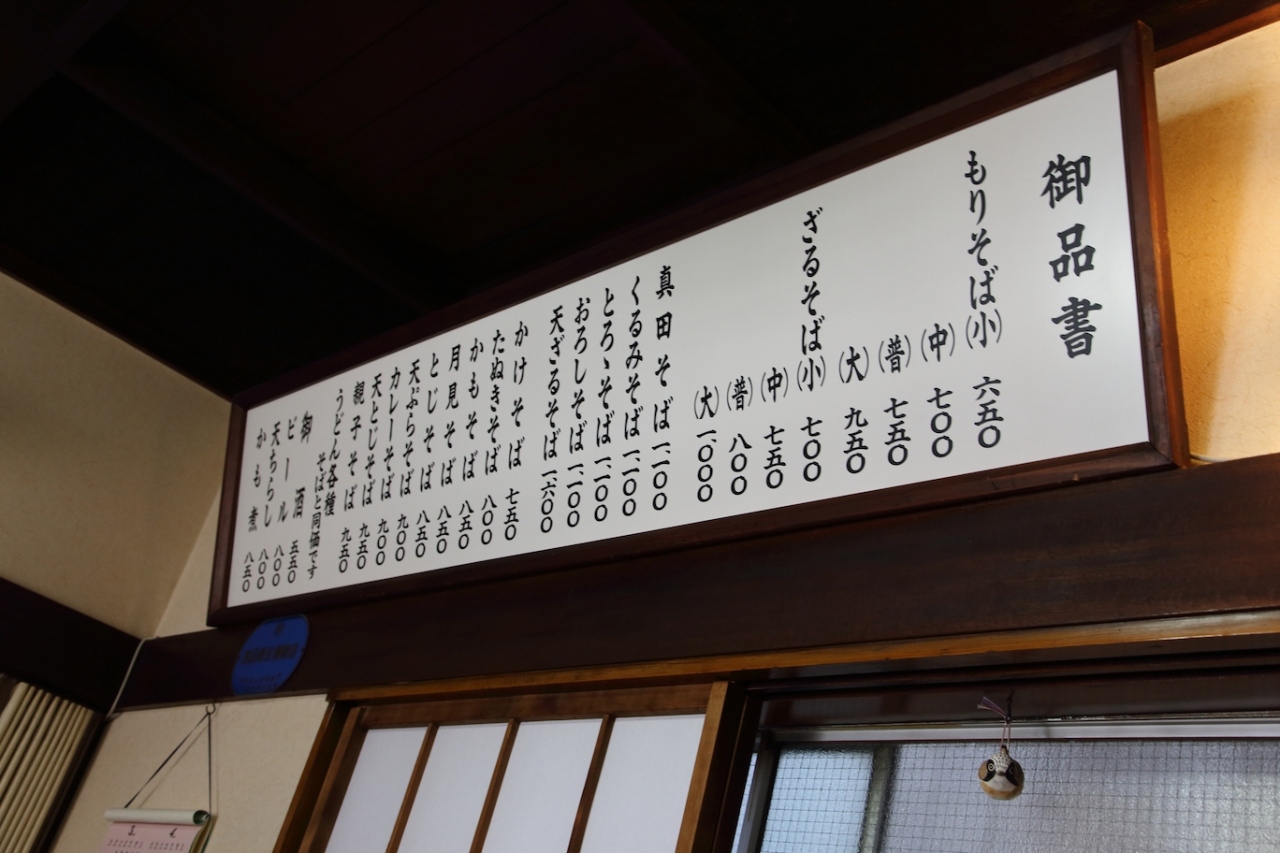 御品書
もりそば(小) 六五〇
(中) 七〇〇
(普) 七五〇
(大) 九五〇
ざるそば(小) 七〇〇
(中) 七五〇
(普) 八〇〇
(大) 一、〇〇〇
真田そば 一、一〇〇
くるみそば 一、一〇〇
とろゝそば 一、一〇〇
おろしそば 一、一〇〇
天ざるそば 一、六〇〇
かけそば 七五〇
たぬきそば 八〇〇
かもそば 八五〇
月見そば 八五〇
とじそば 八五〇
天ぷらそば 九〇〇
カレーそば 九〇〇
天とじそば 九五〇
親子そば 九五〇
うどん各種
そばと同価です
御酒 五五〇
ビール 八〇〇
天ちらし 八〇〇
かも煮 八五〇
3. 4.